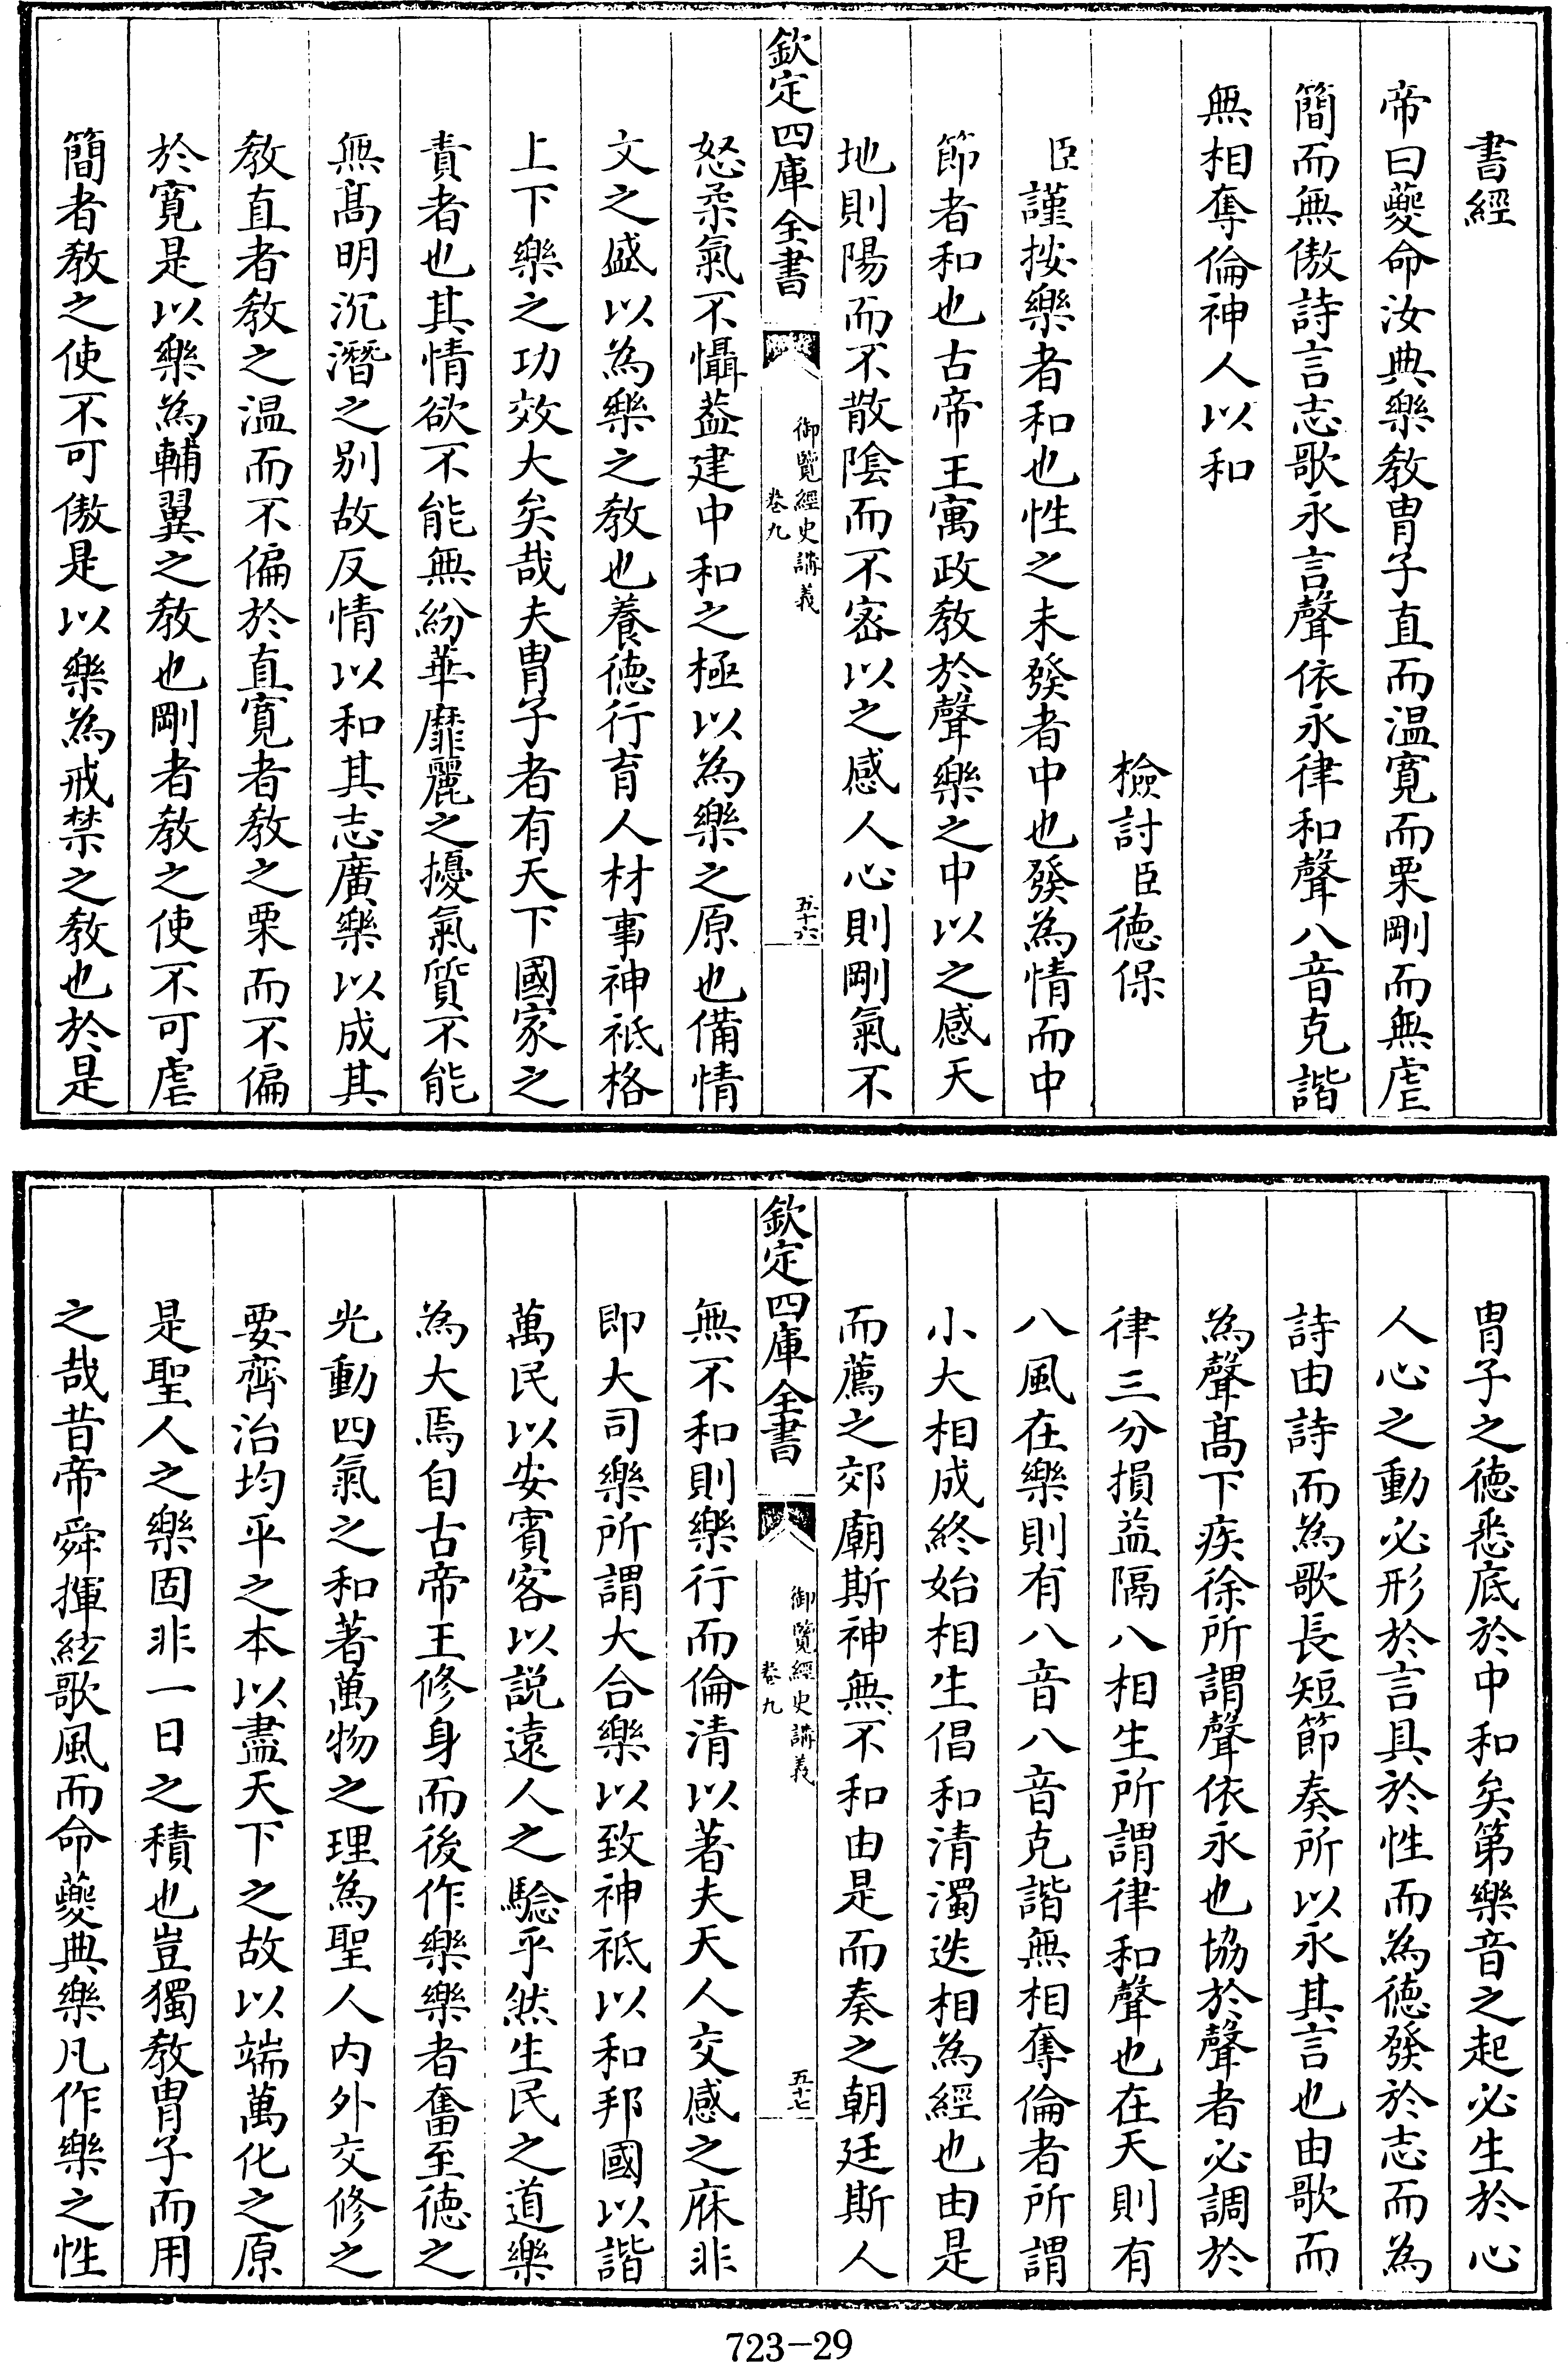 書經
帝曰夔命汝典樂教胄子直而温寛而栗剛而無虐
簡而無傲詩言志歌永言聲依永律和聲八音克諧
無相奪倫神人以和
檢討臣德保
臣謹按樂者和也性之未發者中也發為情而中
節者和也古帝王寓政教於聲樂之中以之感天
地則陽而不散隂而不密以之感人心則剛氣不
欽定四庫全書
御覽經史講義
卷九
五十六
怒柔氣不懾葢建中和之極以為樂之原也備情
文之盛以為樂之教也養徳行育人材事神祗格
上下樂之功效大矣哉夫胄子者有天下國家之
責者也其情欲不能無紛華靡麗之擾氣質不能
無髙明沉潛之别故反情以和其志廣樂以成其
教直者教之温而不偏於直寛者教之栗而不偏
於寛是以樂為輔翼之教也剛者教之使不可虐
簡者教之使不可傲是以樂為戒禁之教也於是
胄子之徳悉底於中和矣第樂音之起必生於心
人心之動必形於言具於性而為徳發於志而為
詩由詩而為歌長短節奏所以永其言也由歌而
為聲髙下疾徐所謂聲依永也協於聲者必調於
律三分損益隔八相生所謂律和聲也在天則有
八風在樂則有八音八音克諧無相奪倫者所謂
小大相成終始相生倡和清濁迭相為經也由是
而薦之郊廟斯神無不和由是而奏之朝廷斯人
欽定四庫全書
御覽經史講義
卷九
五十七
無不和則樂行而倫清以著夫天人交感之庥非
即大司樂所謂大合樂以致神祗以和邦國以諧
萬民以安賓客以説遠人之騐乎然生民之道樂
為大焉自古帝王修身而後作樂樂者奮至徳之
光動四氣之和著萬物之理為聖人内外交修之
要齊治均平之本以盡天下之故以端萬化之原
是聖人之樂固非一日之積也豈獨教胄子而用
之哉昔帝舜揮絃歌風而命夔典樂凡作樂之性
723-29